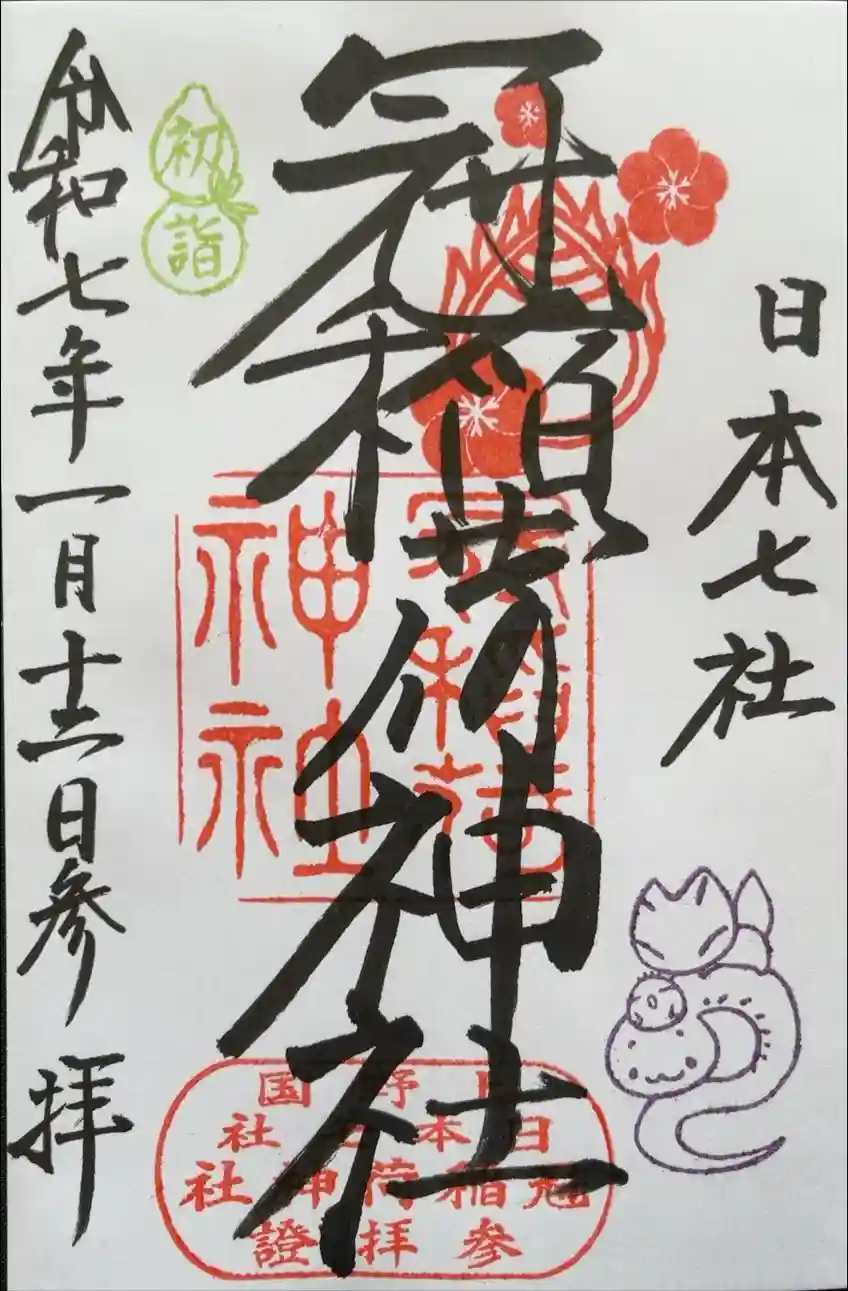 日本七社
冠稲荷神社
冠稲荷
神社
初詣
令和七年一月十二日参拝
上野国
日本七社
冠稲荷神社
参拝證